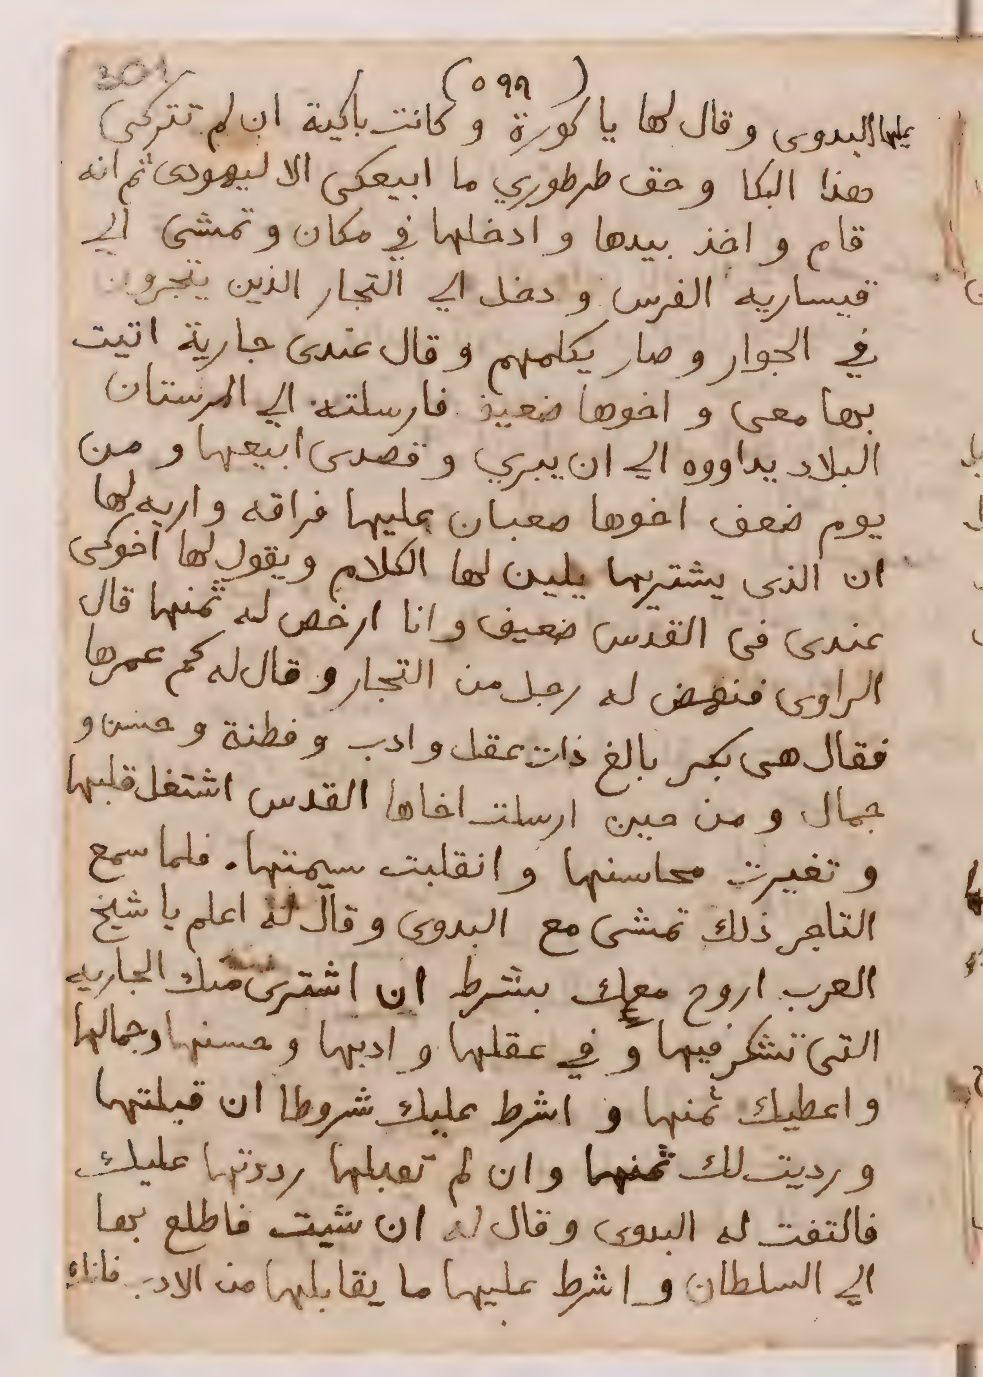 301
(٥٩٩)
عليها البدوى وقال لها يا كورة و كانت باكية ان لم تتركى
هذا البكا و حق طرطوري ما ابيعكى الا ليهودى ثم انه
قام و اخذ بيدها و ادخلها في مكان و تمشى الي
قيساريه الفرس و دخل الي التجار الذين يتجرون
في الجوار و صار يكلمهم و قال عندى جارية اتيت
بها معى و اخوها ضعيف فارسلته الي المرستان
البلاد يداووه الي ان يبري و قصدى ابيعها و من
يوم ضعف اخوها صعبان عليها فراقه و اريد لها
ان الذى يشتريها يلين لها الكلام و يقول لها اخوكى
عندى فى القدس ضعيف و انا ارخص له ثمنها قال
الراوى فنهض له رجل من التجار و قال له كم عمرها
فقال هى بكر بالغ ذات عقل و ادب و فطنة و حسن و
جمال و من حين ارسلت اخاها القدس اشتغل قلبها
و تغيرت محاسنها و انقلبت سيمتها . فلما سمع
التاجر ذلك تمشى مع البدوى و قال له اعلم يا شيخ
العرب اروح معك بشرط ان اشترى منك الجاريه
التى تشكر فيها و في عقلها و ادبها و حسنها و جمالها
و اعطيك ثمنها و اشرط عليك شروطا ان قبلتها
و رديت لك ثمنها و ان لم تقبلها رددتها عليك
فالتفت له البدوى و قال له ان شيت فاطلع بها
الي السلطان و اشرط عليها ما يقابلها من الادب فانك